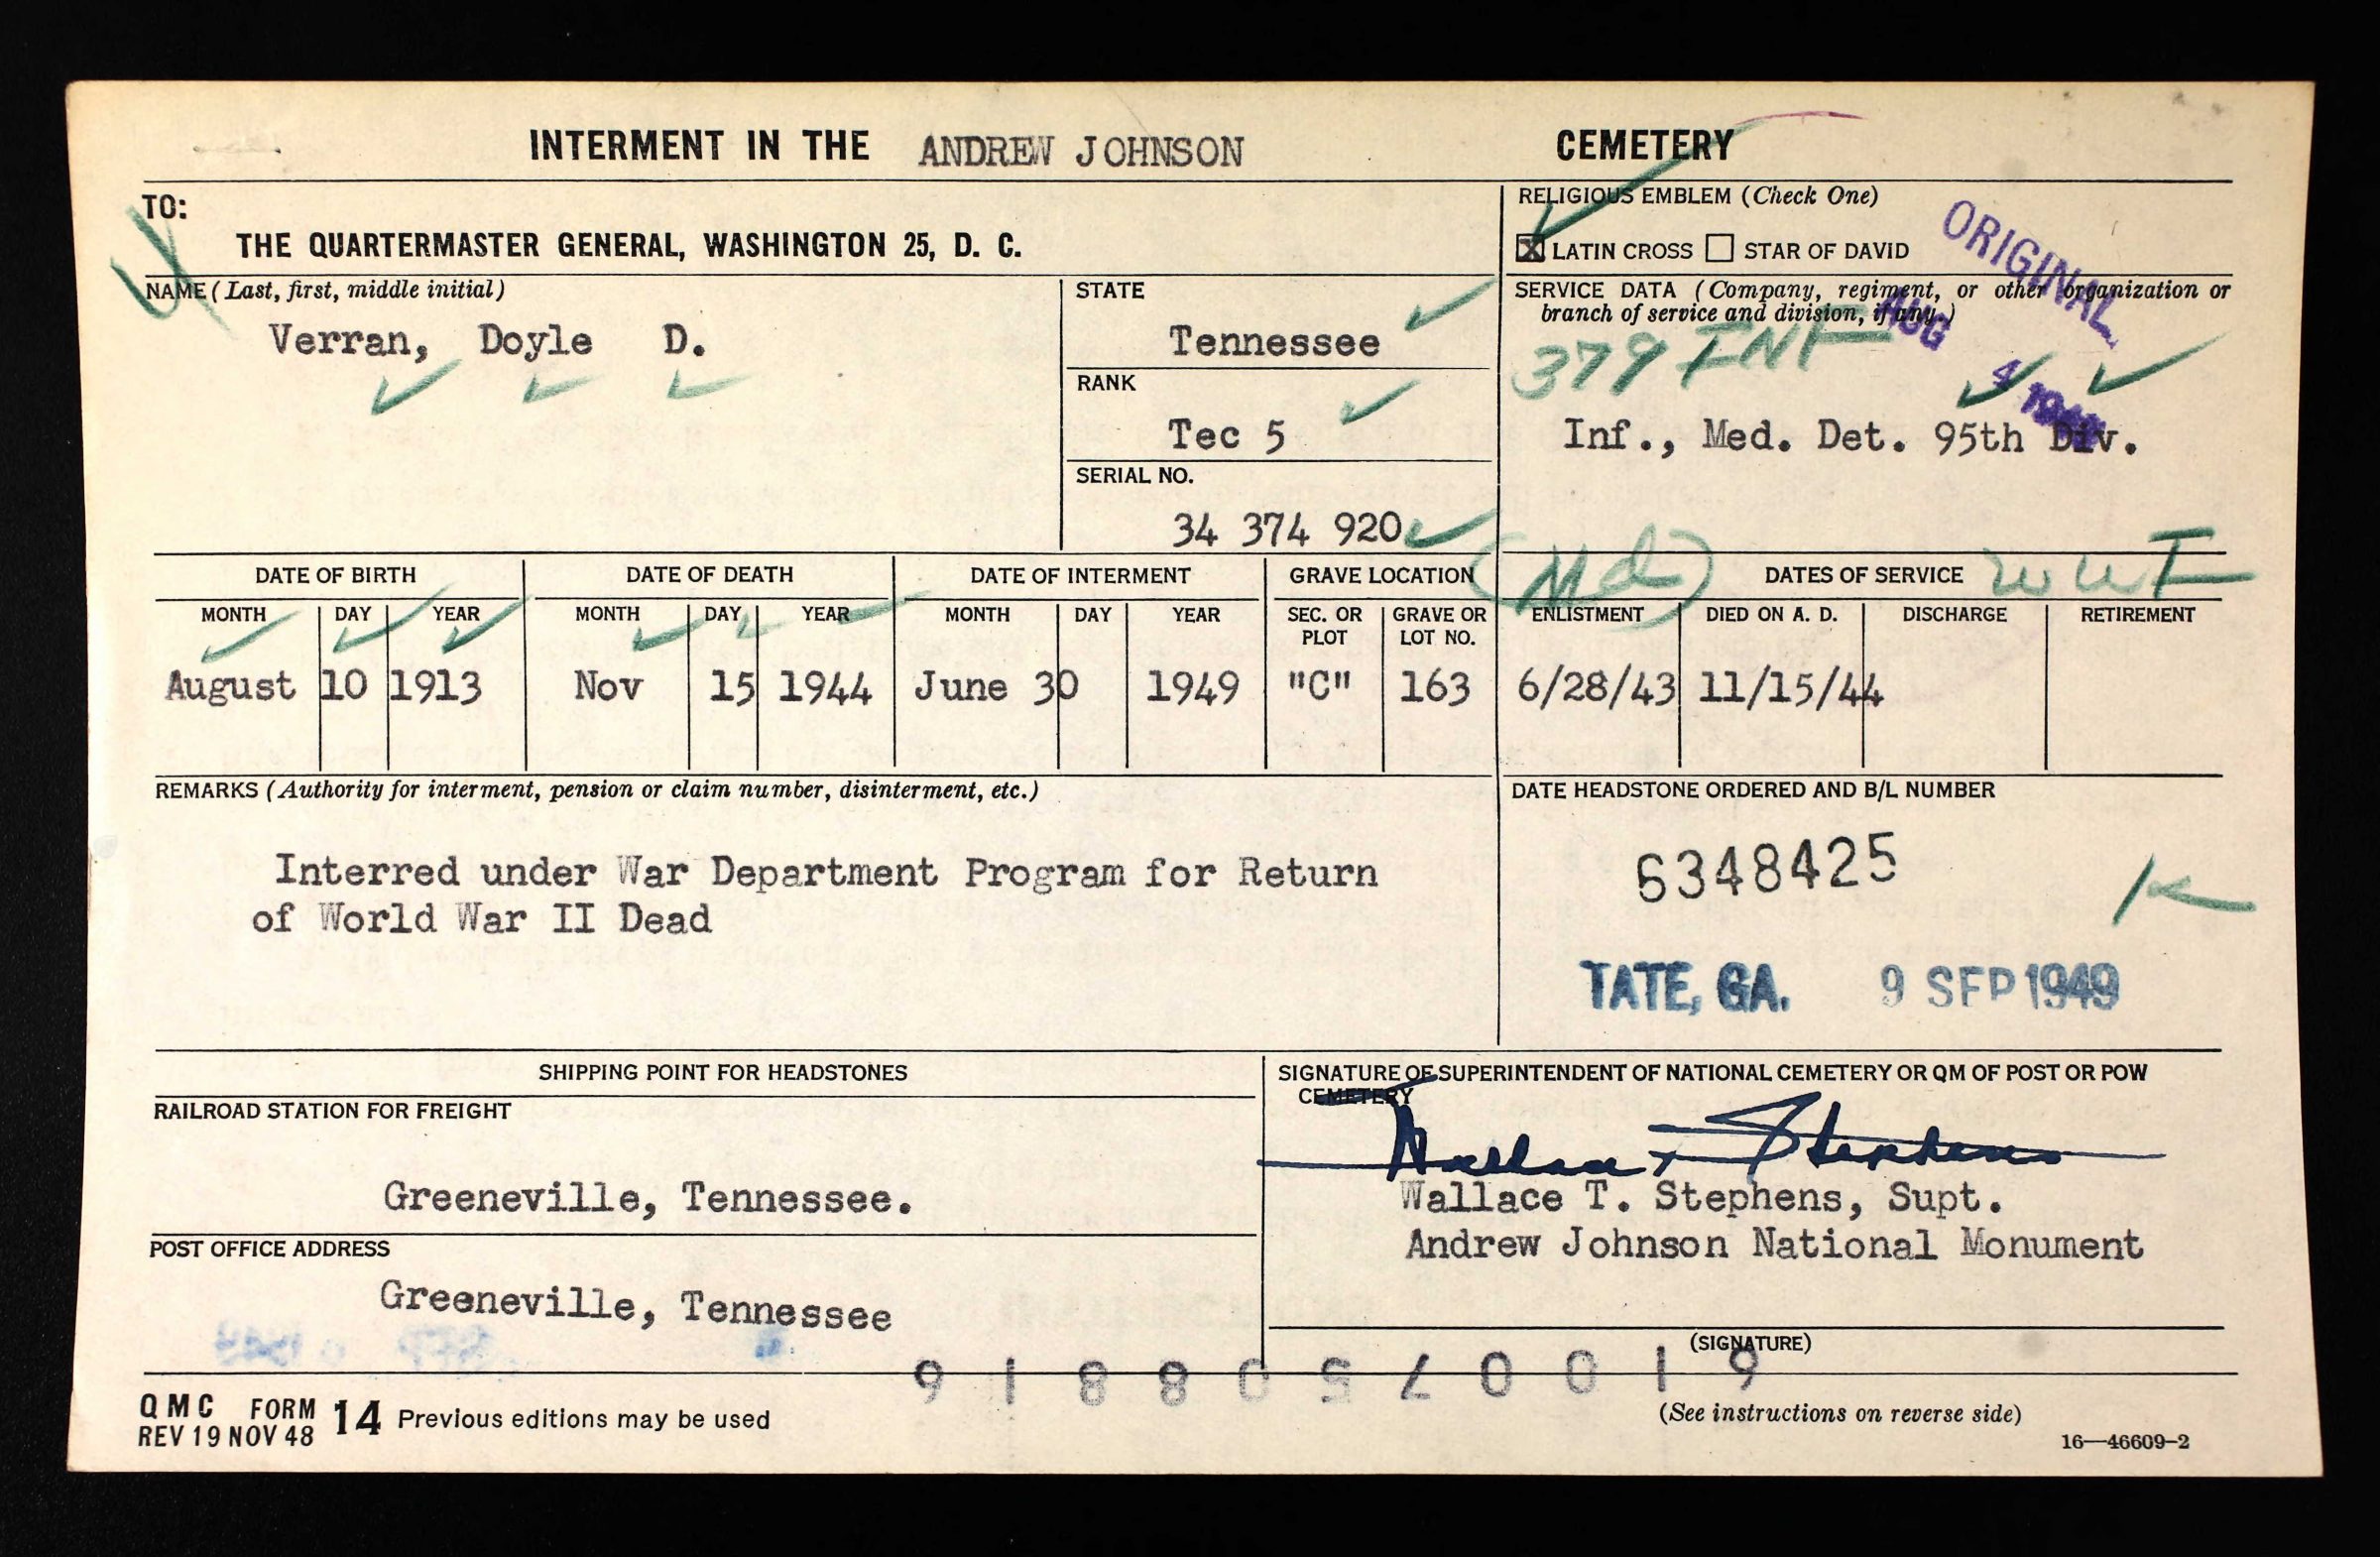 INTERMENT IN THE ANDREW JOHNSON CEMETERY
TO:
THE QUARTERMASTER GENERAL, WASHINGTON 25, D. C.
RELIGIOUS EMBLEM (Check One)
X LATIN CROSS STAR OF DAVID
ORIGINAL
NAME (Last, first, middle initial)
Verran, Doyle D.
STATE
Tennessee
RANK
Tec 5
SERIAL NO.
34 374 920
SERVICE DATA (Company, regiment, or other organization or
branch of service and division, if any)
AUG 4
379 INF
Inf., Med. Det. 95th Div.
DATE OF BIRTH DATE OF DEATH DATE OF INTERMENT GRAVE LOCATION (Md) DATES OF SERVICE
MONTH DAY YEAR MONTH DAY YEAR MONTH DAY YEAR SEC. OR PLOT GRAVE OR LOT NO. ENLISTMENT DIED ON A. D. DISCHARGE RETIREMENT
August 10 1913 Nov 15 1944 June 30 1949 "C" 163 6/28/43 11/15/44
REMARKS (Authority for interment, pension or claim number, disinterment, etc.)
Interred under War Department Program for Return
of World War II Dead
DATE HEADSTONE ORDERED AND B/L NUMBER
6348425
TATE, GA. 9 SEP 1949
SHIPPING POINT FOR HEADSTONES
RAILROAD STATION FOR FREIGHT
Greeneville, Tennessee.
POST OFFICE ADDRESS
Greeneville, Tennessee
SIGNATURE OF SUPERINTENDENT OF NATIONAL CEMETERY OR QM OF POST OR POW
CEMETERY
Wallace T. Stephens
Wallace T. Stephens, Supt.
Andrew Johnson National Monument
(SIGNATURE)
61007508819
QMC FORM 14 Previous editions may be used
REV 19 NOV 48
(See instructions on reverse side)
16—46609-2